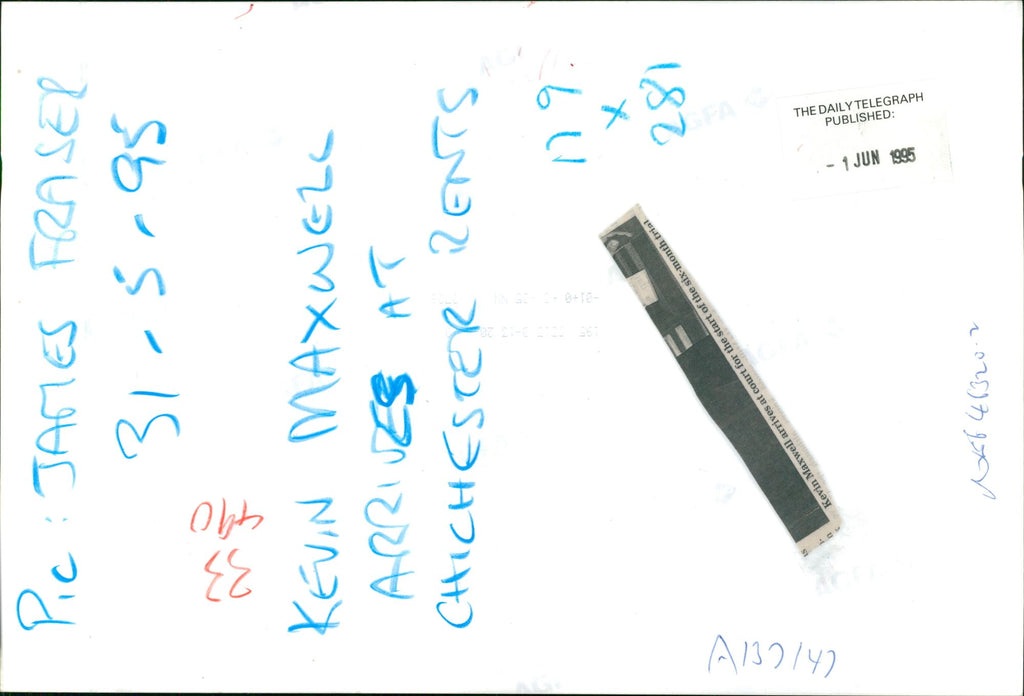 Pic: JAMES FRASER
31-5-95
KEVIN MAXWELL
ARRIVES AT
CHICHESTER RENTS
n 9
x
281
THE DAILY TELEGRAPH
PUBLISHED:
- 1 JUN 1995
Kevin Maxwell arrives at court for the start of the six-month trial
33
A137/47
AGFA